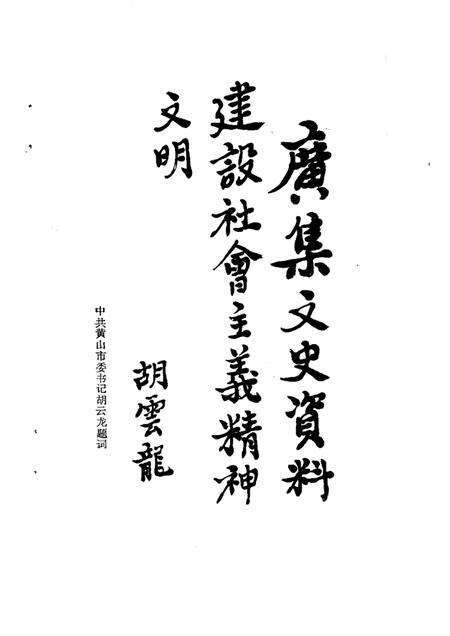 廣集文史資料
建設社會主義精神
文明
胡雲龍
中共黄山市委书记胡云龙题词